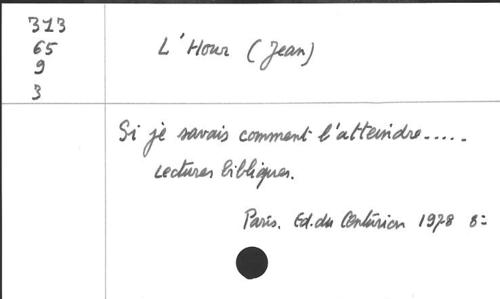 313
65
9
3
L'Hour (Jean)
Si je savais comment l'atteindre.....
Lectures bibliques.
Paris. Ed. du Centurion 1978 8=